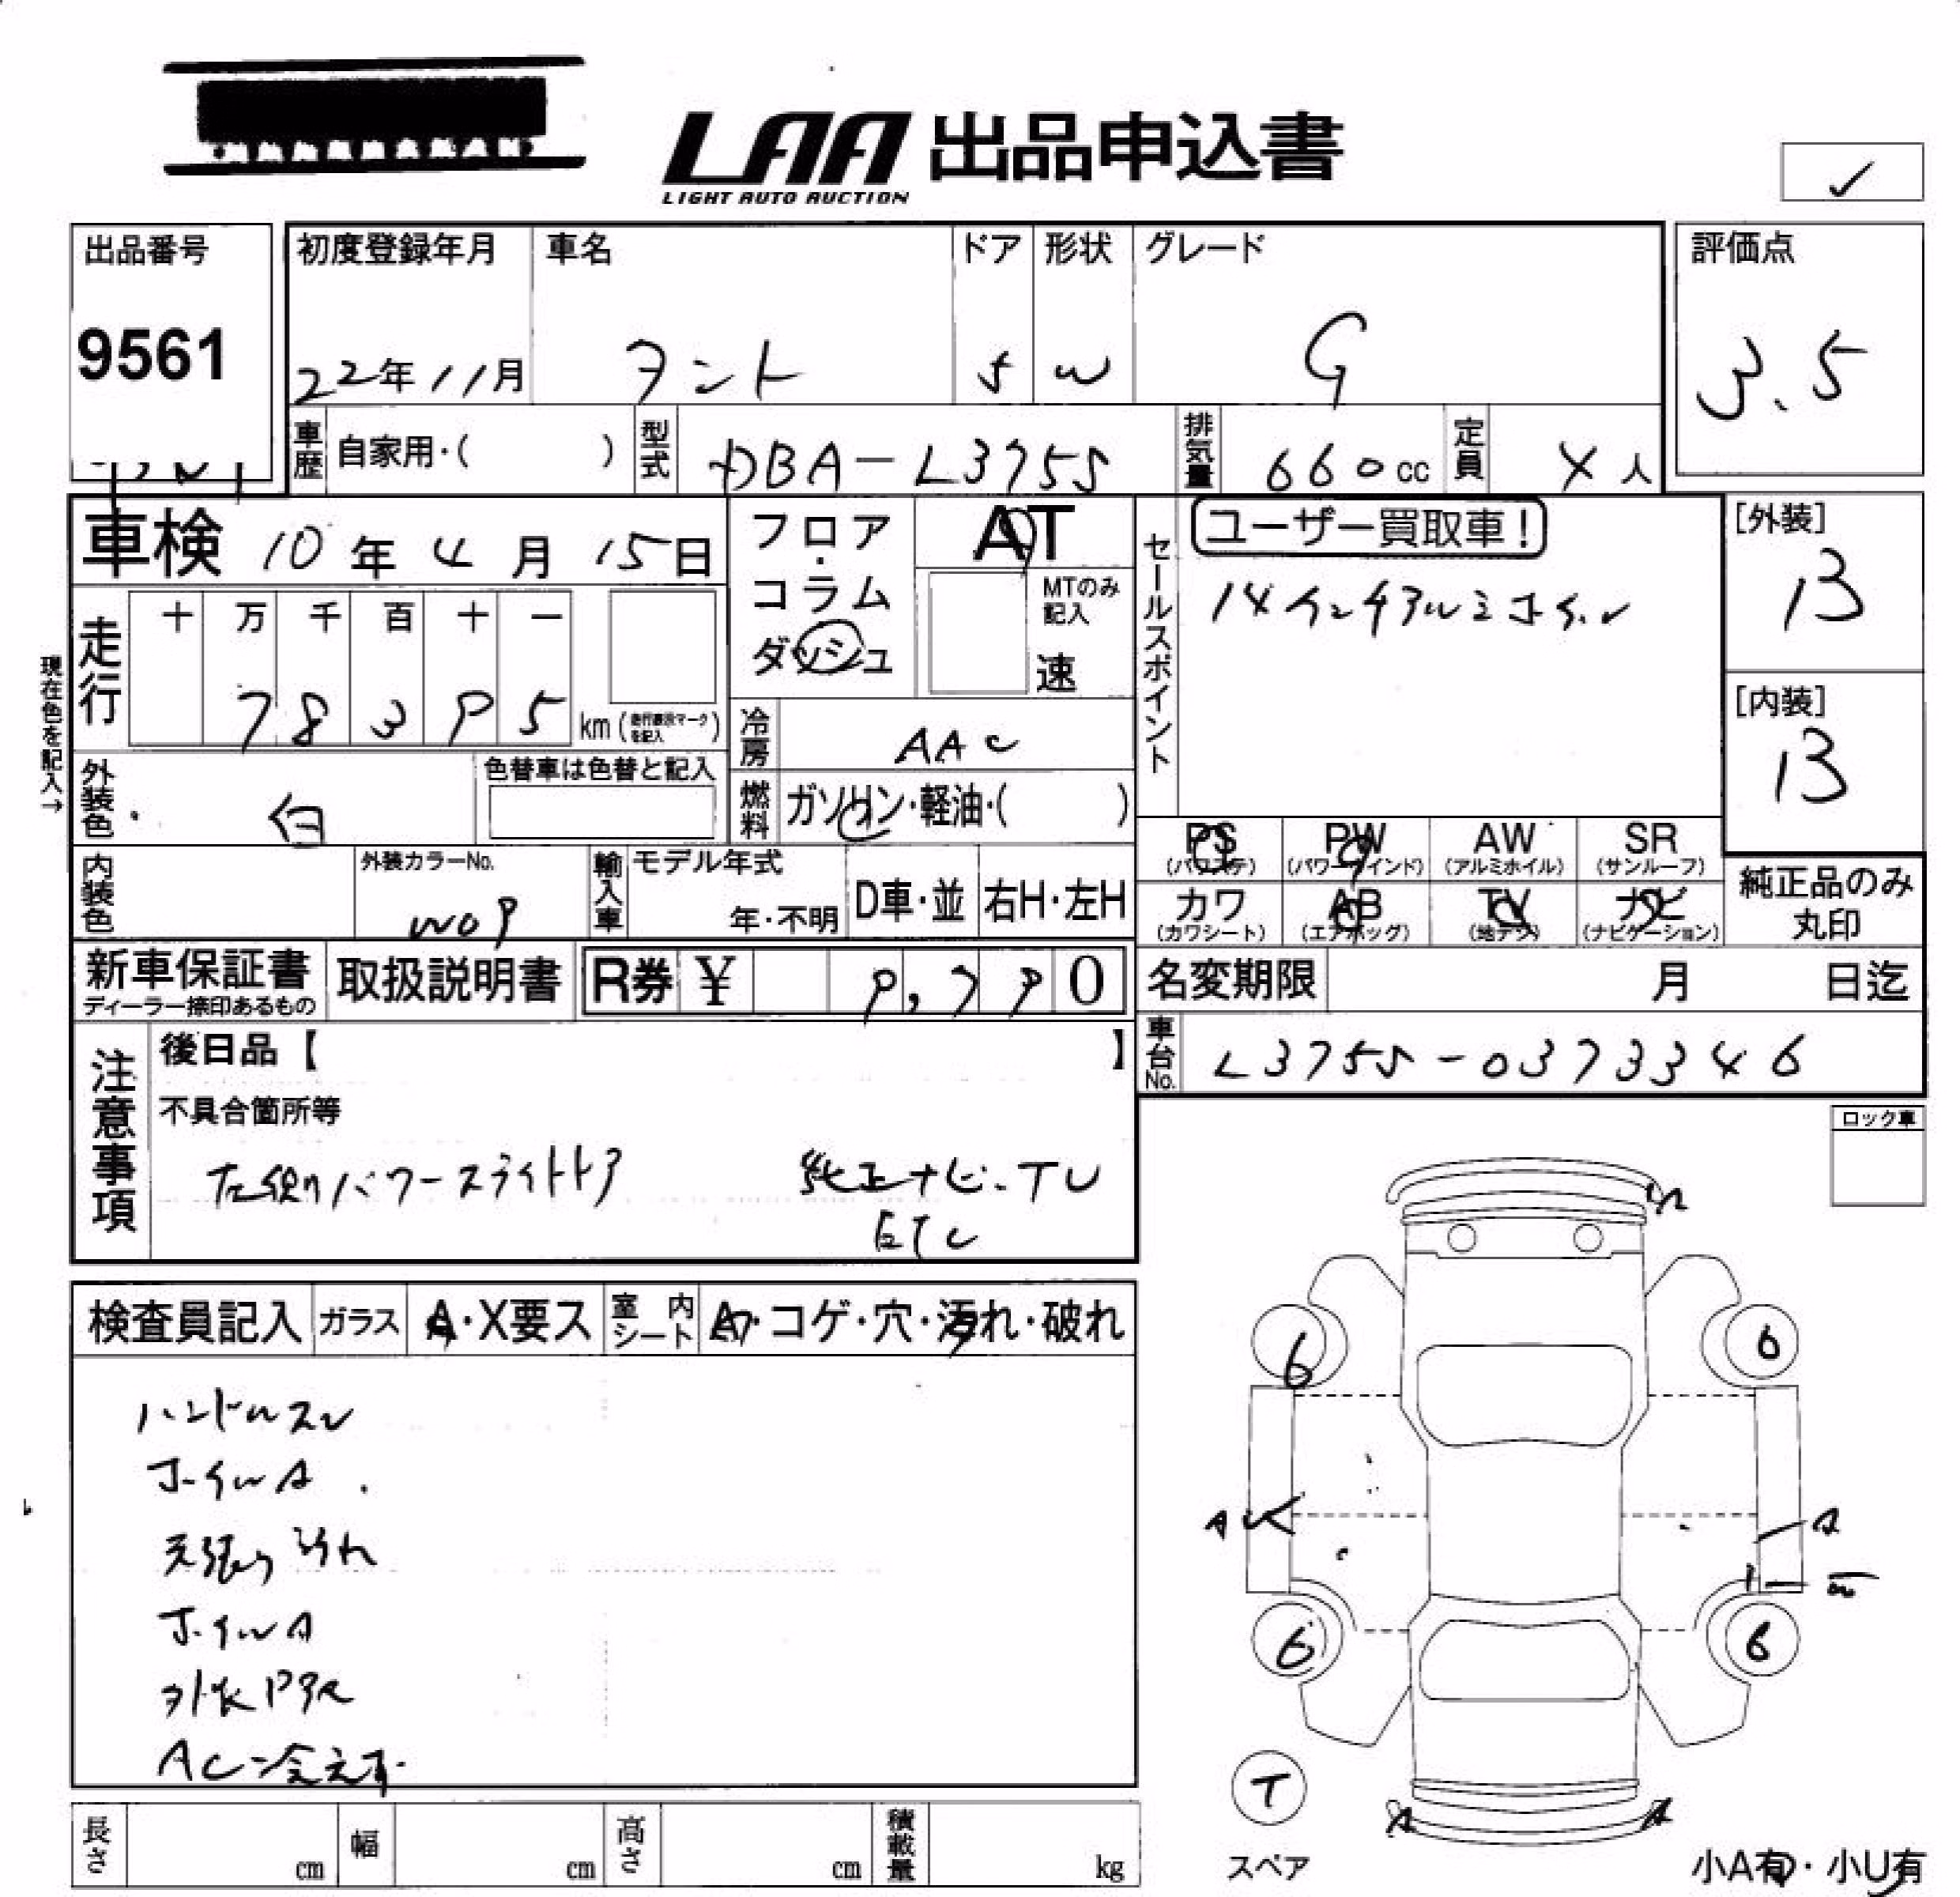 LAA 出品申込書
LIGHT AUTO AUCTION
✓
出品番号
9561
初度登録年月
22年11月
車名
タント
ドア
5
形状
W
グレード
G
評価点
3.5
車歴 自家用・( )
型式 DBA-L375S
排気量 660cc
定員 4人
車検 10年4月15日
フロア・コラム
ダッシュ
AT
MTのみ記入
速
セールスポイント
ユーザー買取車!
14インチアルミホイール
[外装]
13
[内装]
13
現在色を記入→
走行
十 万 千 百 十 一
7 8 3 9 5 km (走行表示マークを記入)
冷房 AAC
燃料 ガソリン・軽油・( )
外装色 白
色替車は色替と記入
内装色
外装カラーNo.
W09
輸入車
モデル年式
年・不明
D車・並
右H・左H
PS (パワステ)
PW (パワーウインド)
AW (アルミホイル)
SR (サンルーフ)
カワ (カワシート)
AB (エアバッグ)
TV (地デジ)
ナビ (ナビゲーション)
純正品のみ丸印
新車保証書
ディーラー捺印あるもの
取扱説明書
R券 ¥ 9,790
名変期限 月 日迄
車台No. L375S-0373346
注意事項
後日品【 】
不具合箇所等
左側パワースライドドア 純正ナビ.TV
ETC
ロック車
検査員記入
ガラス A・X要ス
室内シート A・コゲ・穴・汚れ・破れ
ハンドルスレ
ホイルA
天張り汚れ
ホイルA
AC冷えず
6
6
A
A
6
6
T
スペア
A
A
長さ cm
幅 cm
高さ cm
積載量 kg
小A有・小U有